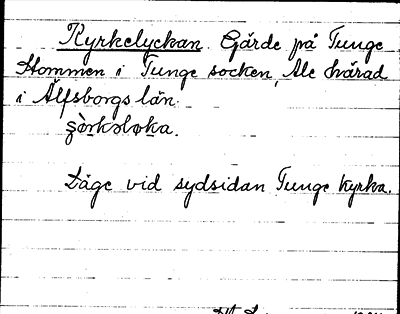 Kyrkelyckan. Gärde på Tunge
Hommen i Tunge socken, Ale härad
i Älfsborgs län.
Läge vid sydsidan Tunge kyrka.